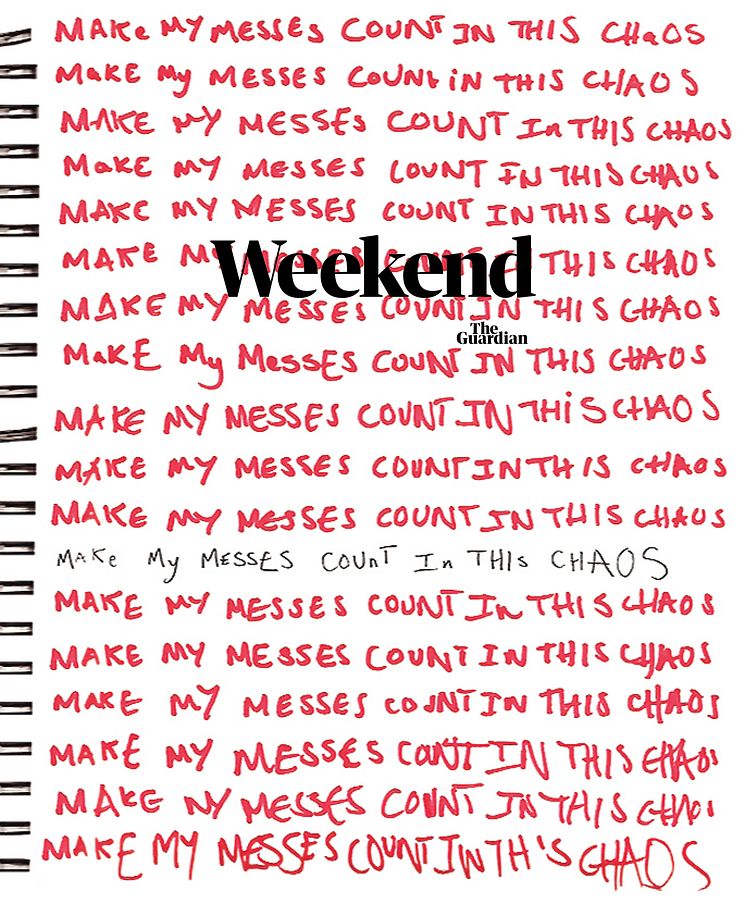 MAKe MY MESSES COUNT IN THIS CHaOS
MaKE My MESSES COUNt iN THIS CHAOS
MAKE MY MESSEs COUNT In THIS CHAOS
MaKE MY MESSES COUNT IN THIS CHAOS
MAKE MY MESSES COUNT IN THIS CHAOS
MAKE MY MESSES COUNT IN THIS CHAOS
Weekend
MAKE MY MESSES COUNT IN THIS CHAOS
The
Guardian
MaKE My MesSES COUNT IN THIS CHAOS
MAKE MY MESSES COUNT IN THiS CHAOS
MAKE MY MESSES COUNT IN THIS CHAOS
MAKE MY MESSES COUNT IN THIS CHAOS
MAKe My MESSES COUnT In THIs CHAOS
MAKE MY MESSES COUNT In THIS CHAOS
MAKE MY MESSES COUNT IN THIS CHAOS
MAKE MY MESSES COUNT IN THIS CHAOS
MAKE MY MESSES COUNT IN THIS CHAOS
MAKE NY MESSES COUNT IN THIS CHAOS
MAKE MY MESSES COUNT IN TH'S CHAOS